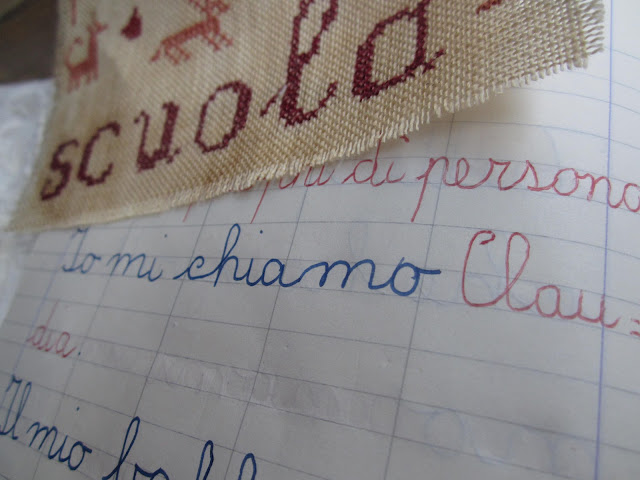 scuola
di persona
Io mi chiamo Clau=
dia.
Il mio